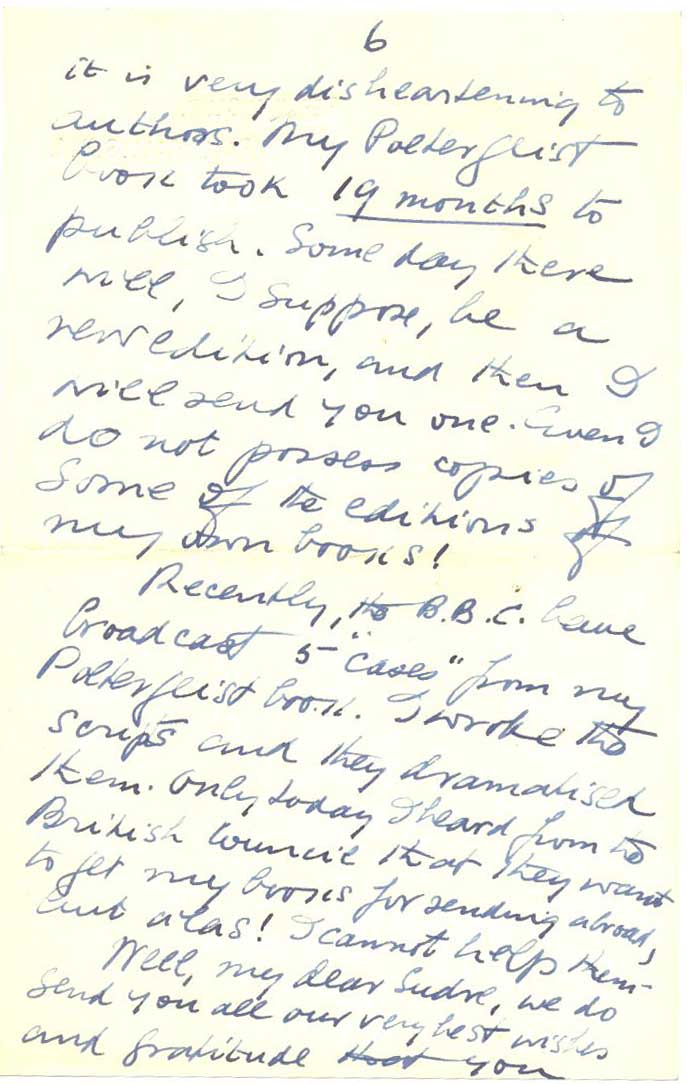 6
it is very disheartening to
authors. My Poltergeist
book took 19 months to
publish. Some day there
will, I suppose, be a
new edition, and then I
will send you one. Even I
do not possess copies of
some of the editions of
my own books!
Recently, the B.B.C. have
broadcast 5 "cases" from my
Poltergeist book. I wrote the
scripts and they dramatised
them. Only today I heard from the
British Council that they want
to get my books for sending abroad,
but alas! I cannot help them.
Well, my dear Sudre, we do
send you all our very best wishes
and gratitude that you